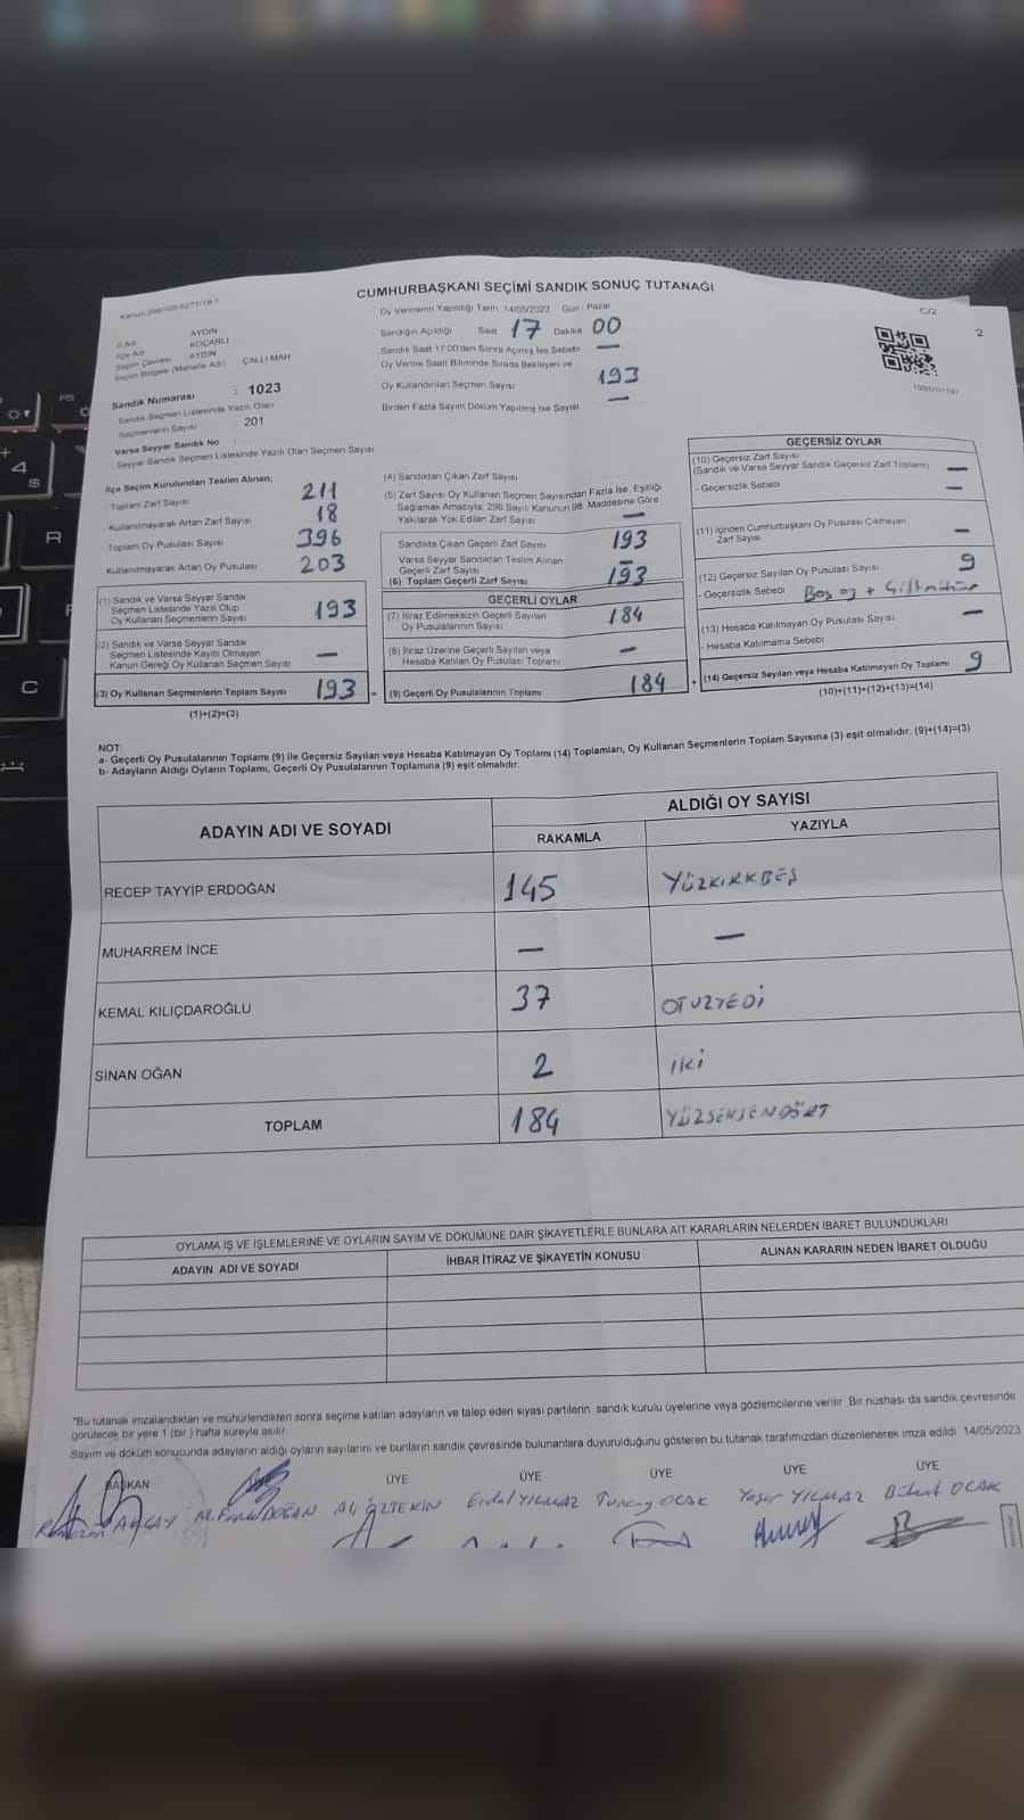 CUMHURBAŞKANI SEÇİMİ SANDIK SONUÇ TUTANAĞI
Oy Vermenin Yapıldığı Tarih 14/05/2023 Gün: Pazar
C/2
2
İl Adı AYDIN
İlçe Adı KOÇARLI
Seçim Çevresi AYDIN
Seçim Bölgesi (Mahalle Adı) ÇALLI MAH
Sandık Numarası : 1023
Sandık Seçmen Listesinde Yazılı Olan
Seçmenlerin Sayısı 201
Varsa Seyyar Sandık No
Seyyar Sandık Seçmen Listesinde Yazılı Olan Seçmen Sayısı
Sandığın Açıldığı Saat 17 Dakika 00
Sandık Saat 17:00'den Sonra Açılmış İse Sebebi —
Oy Verme Saati Bitiminde Sırada Bekleyen ve
Oy Kullandırılan Seçmen Sayısı 193
Birden Fazla Sayım Döküm Yapılmış İse Sayısı —
İlçe Seçim Kurulundan Teslim Alınan;
- Toplam Zarf Sayısı 211
- Kullanılmayarak Artan Zarf Sayısı 18
- Toplam Oy Pusulası Sayısı 396
Kullanılmayarak Artan Oy Pusulası 203
(1) Sandık ve Varsa Seyyar Sandık
Seçmen Listesinde Yazılı Olup
Oy Kullanan Seçmenlerin Sayısı 193
(2) Sandık ve Varsa Seyyar Sandık
Seçmen Listesinde Kayıtlı Olmayan
Kanun Gereği Oy Kullanan Seçmen Sayısı —
(3) Oy Kullanan Seçmenlerin Toplam Sayısı 193
(1)+(2)=(3)
(4) Sandıktan Çıkan Zarf Sayısı
(5) Zarf Sayısı Oy Kullanan Seçmen Sayısından Fazla İse, Eşitliği
Sağlamak Amacıyla, 298 Sayılı Kanunun 98. Maddesine Göre
Yakılarak Yok Edilen Zarf Sayısı —
Sandıkta Çıkan Geçerli Zarf Sayısı 193
Varsa Seyyar Sandıktan Teslim Alınan
Geçerli Zarf Sayısı —
(6) Toplam Geçerli Zarf Sayısı 193
GEÇERLİ OYLAR
(7) İtiraz Edilmeksizin Geçerli Sayılan
Oy Pusulalarının Sayısı 184
(8) İtiraz Üzerine Geçerli Sayılan veya
Hesaba Katılan Oy Pusulası Toplamı —
(9) Geçerli Oy Pusulalarının Toplamı 184
GEÇERSİZ OYLAR
(10) Geçersiz Zarf Sayısı
(Sandık ve Varsa Seyyar Sandık Geçersiz Zarf Toplamı) —
- Geçersizlik Sebebi —
(11) İçinden Cumhurbaşkanı Oy Pusulası Çıkmayan
Zarf Sayısı —
(12) Geçersiz Sayılan Oy Pusulası Sayısı 9
- Geçersizlik Sebebi Boş oy +
(13) Hesaba Katılmayan Oy Pusulası Sayısı —
- Hesaba Katılmama Sebebi
(14) Geçersiz Sayılan veya Hesaba Katılmayan Oy Toplamı 9
(10)+(11)+(12)+(13)=(14)
NOT:
a- Geçerli Oy Pusulalarının Toplamı (9) ile Geçersiz Sayılan veya Hesaba Katılmayan Oy Toplamı (14) Toplamları, Oy Kullanan Seçmenlerin Toplam Sayısına (3) eşit olmalıdır. (9)+(14)=(3)
b- Adayların Aldığı Oyların Toplamı, Geçerli Oy Pusulalarının Toplamına (9) eşit olmalıdır.
ADAYIN ADI VE SOYADI
ALDIĞI OY SAYISI
RAKAMLA
YAZIYLA
RECEP TAYYİP ERDOĞAN 145 YÜZKIRKBEŞ
MUHARREM İNCE — —
KEMAL KILIÇDAROĞLU 37 OTUZYEDİ
SİNAN OĞAN 2 İKİ
TOPLAM 184 YÜZSEKSENDÖRT
OYLAMA İŞ VE İŞLEMLERİNE VE OYLARIN SAYIM VE DÖKÜMÜNE DAİR ŞİKAYETLERLE BUNLARA AİT KARARLARIN NELERDEN İBARET BULUNDUKLARI
ADAYIN ADI VE SOYADI
İHBAR İTİRAZ VE ŞİKAYETİN KONUSU
ALINAN KARARIN NEDEN İBARET OLDUĞU
"Bu tutanak imzalandıktan ve mühürlendikten sonra seçime katılan adayların ve talep eden siyasi partilerin sandık kurulu üyelerine veya gözlemcilerine verilir. Bir nüshası da sandık çevresinde
görülecek bir yere 1 (bir) hafta süreyle asılır.
Sayım ve döküm sonucunda adayların aldığı oyların sayılarını ve bunların sandık çevresinde bulunanlara duyurulduğunu gösteren bu tutanak tarafımızdan düzenlenerek imza edildi. 14/05/2023
BAŞKAN ÜYE ÜYE ÜYE ÜYE ÜYE
DOĞAN ALİ ÖZTEKİN Erdal YILMAZ Tuncay OCAK Yaşar YILMAZ Bülent OCAK